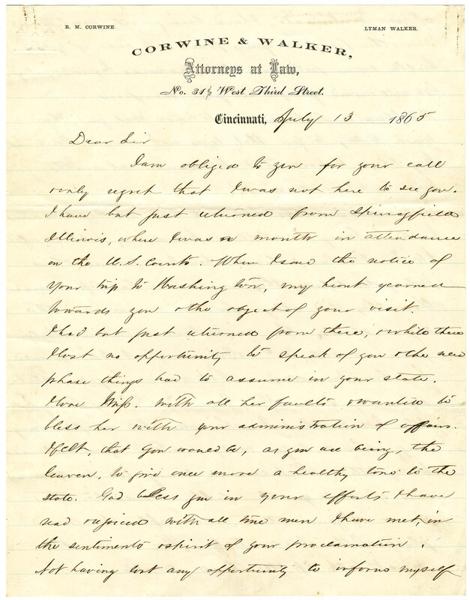 R. M. CORWINE.
LYMAN WALKER.
CORWINE & WALKER,
Attorneys at Law,
No. 31½ West Third Street.
Cincinnati, July 13 1865
Dear Sir
I am obliged to you for your call
& only regret that I was not here to see you.
I have but just returned from Springfield
Illinois, where I was a month in attendance
on the U.S. Courts. When I saw the notice of
your trip to Washington, my heart yearned
towards you & the object of your visit.
I had but just returned from there, & while there
I lost no opportunity to speak of you & the new
phase things had to assume in your state.
I love Miss. with all her faults & wanted to
bless her with your administration of affairs.
I felt, that you would be, as you are being, the
leaven, to give once more a healthy tone to the
state. God bless you in your efforts. I have
read & rejoiced with all true men I have met, in
the sentiments & spirit of your proclamation.
Not having lost any opportunity to inform myself